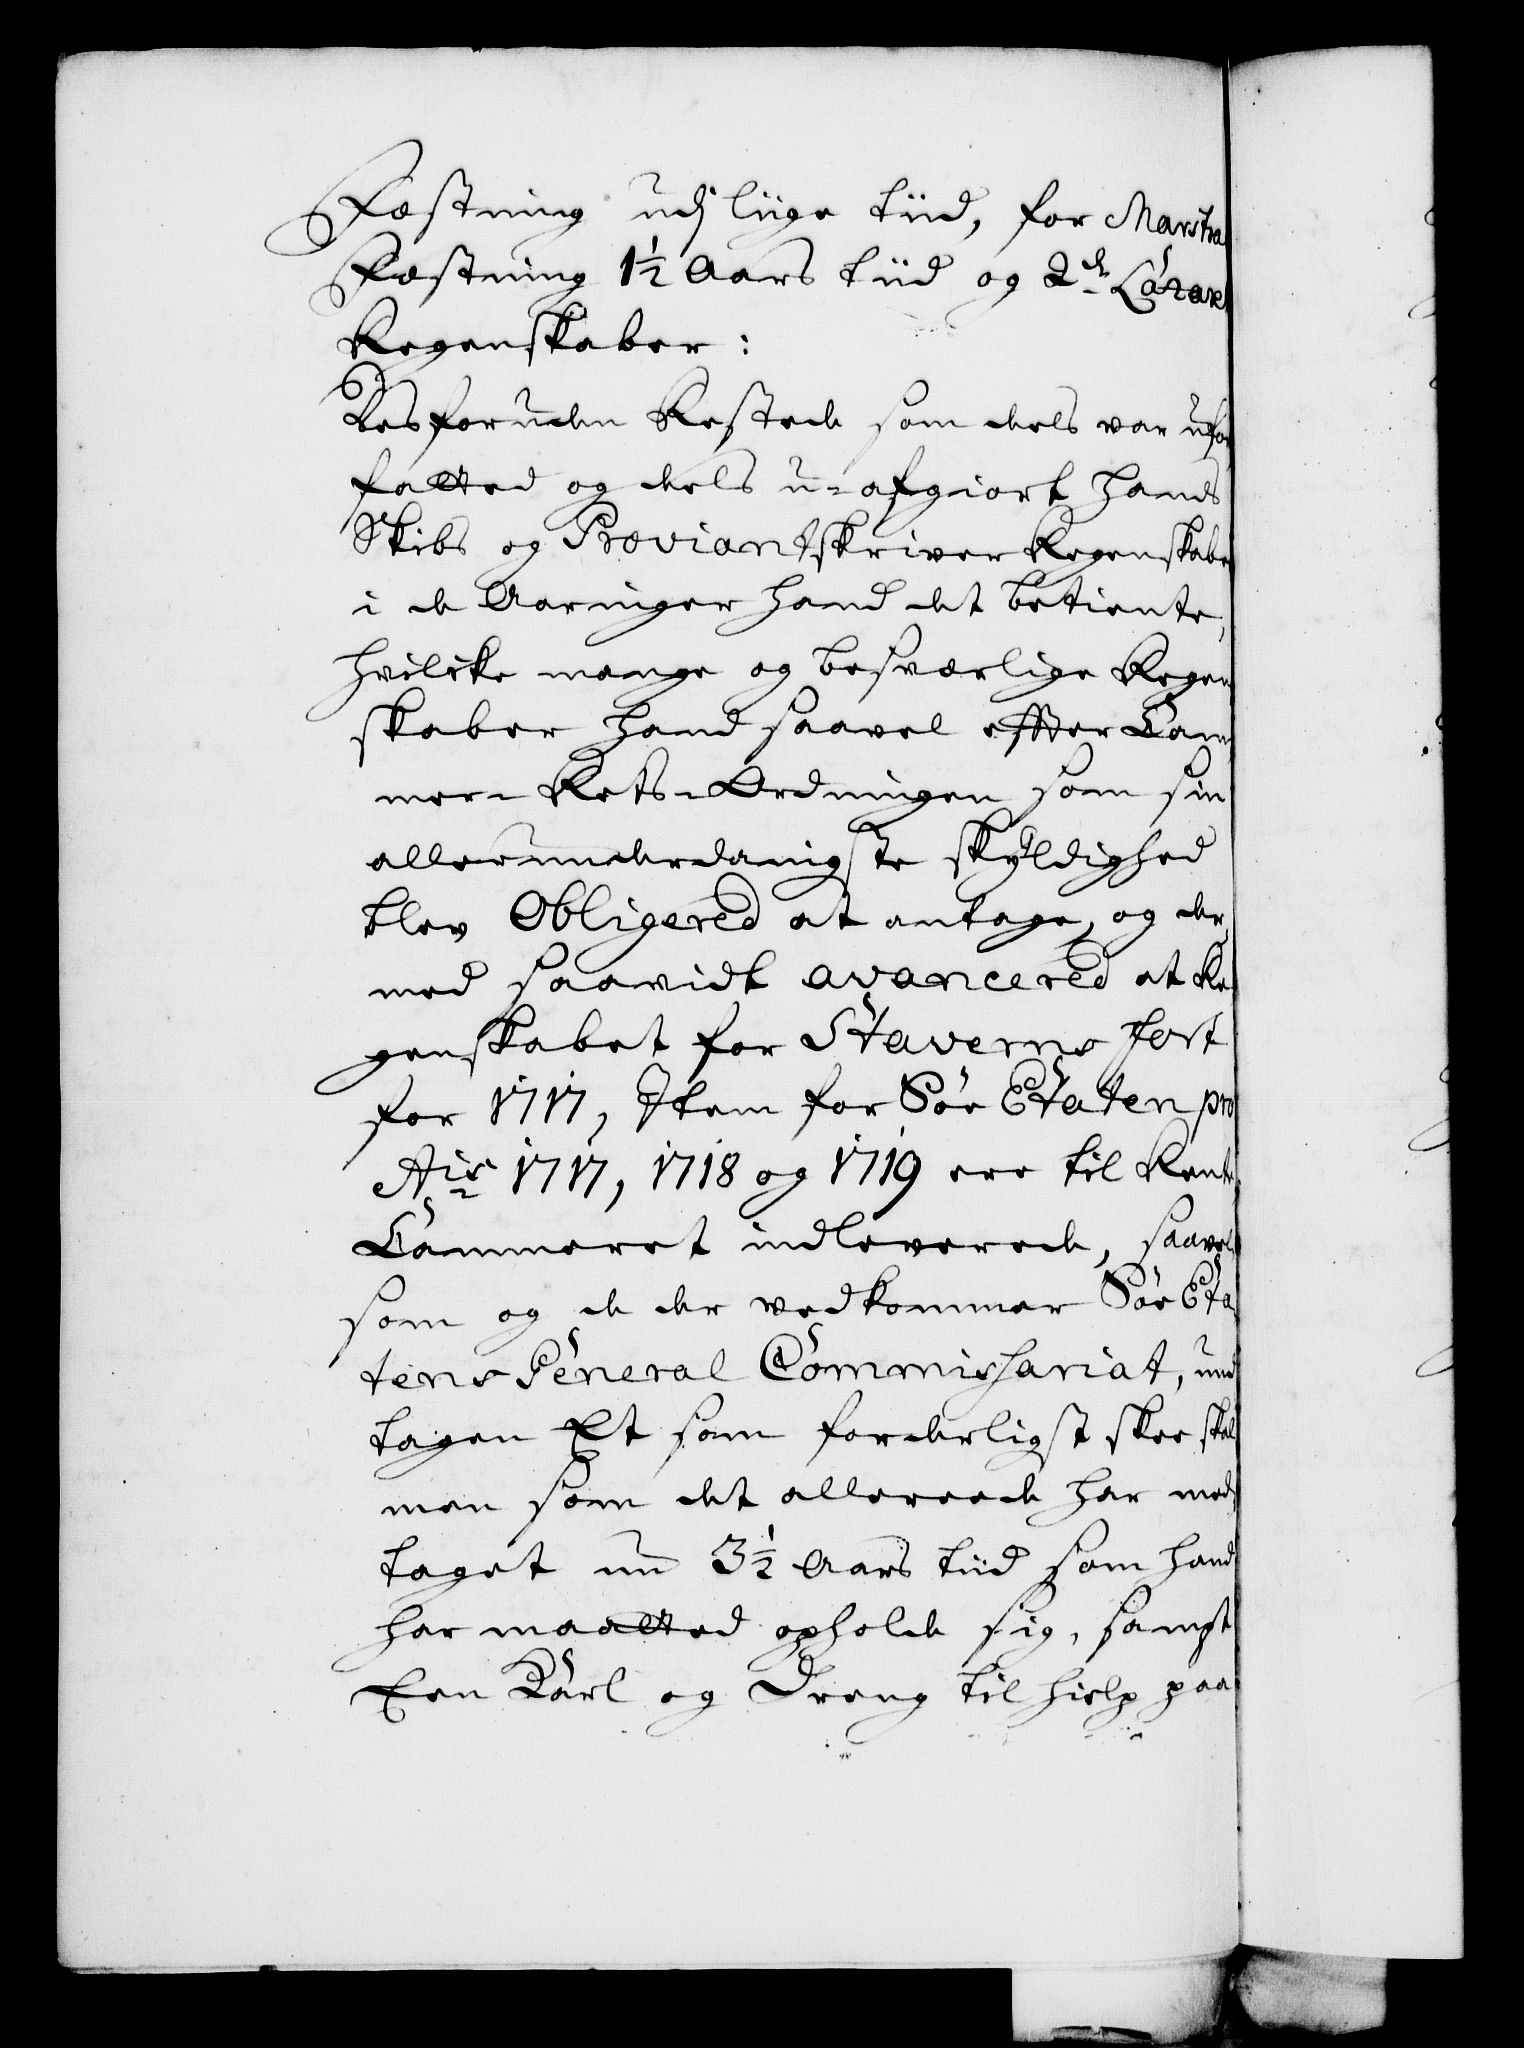 Fæstning udj liige tiid, for Marstra
Fæstning 1½ Aars tiid og 2de Lazaret
Regenskaber:
Desforuden Restede som deels var ufor
fatted og deels u-afgiort hands
Skibs og Proviantskriver Regenskaber
i de Aaringer hand det betiente,
hvilcke mange og besværlige Regen
skaber hand saavel effter Cam
mer-Rets-Ordningen som sin
allerunderdanigste skyldighed
blev Obligered at antage, og der
med saavidt avancered at Re
genskabet for Staverns Fort
for 1717, Item for Søe Etaten pro
Aõ 1717, 1718 og 1719 ere til Rente
Cammeret indleverede, saavel
som og de der vedkommer Søe Eta
tens General Commissariat, und
tagen Et som forderligst skee skal
men som det allereede har med
taget nu 3½ Aars tiid som hand
har maatted opholde sig, sampt
Een Karl og Dreng til hielp paa